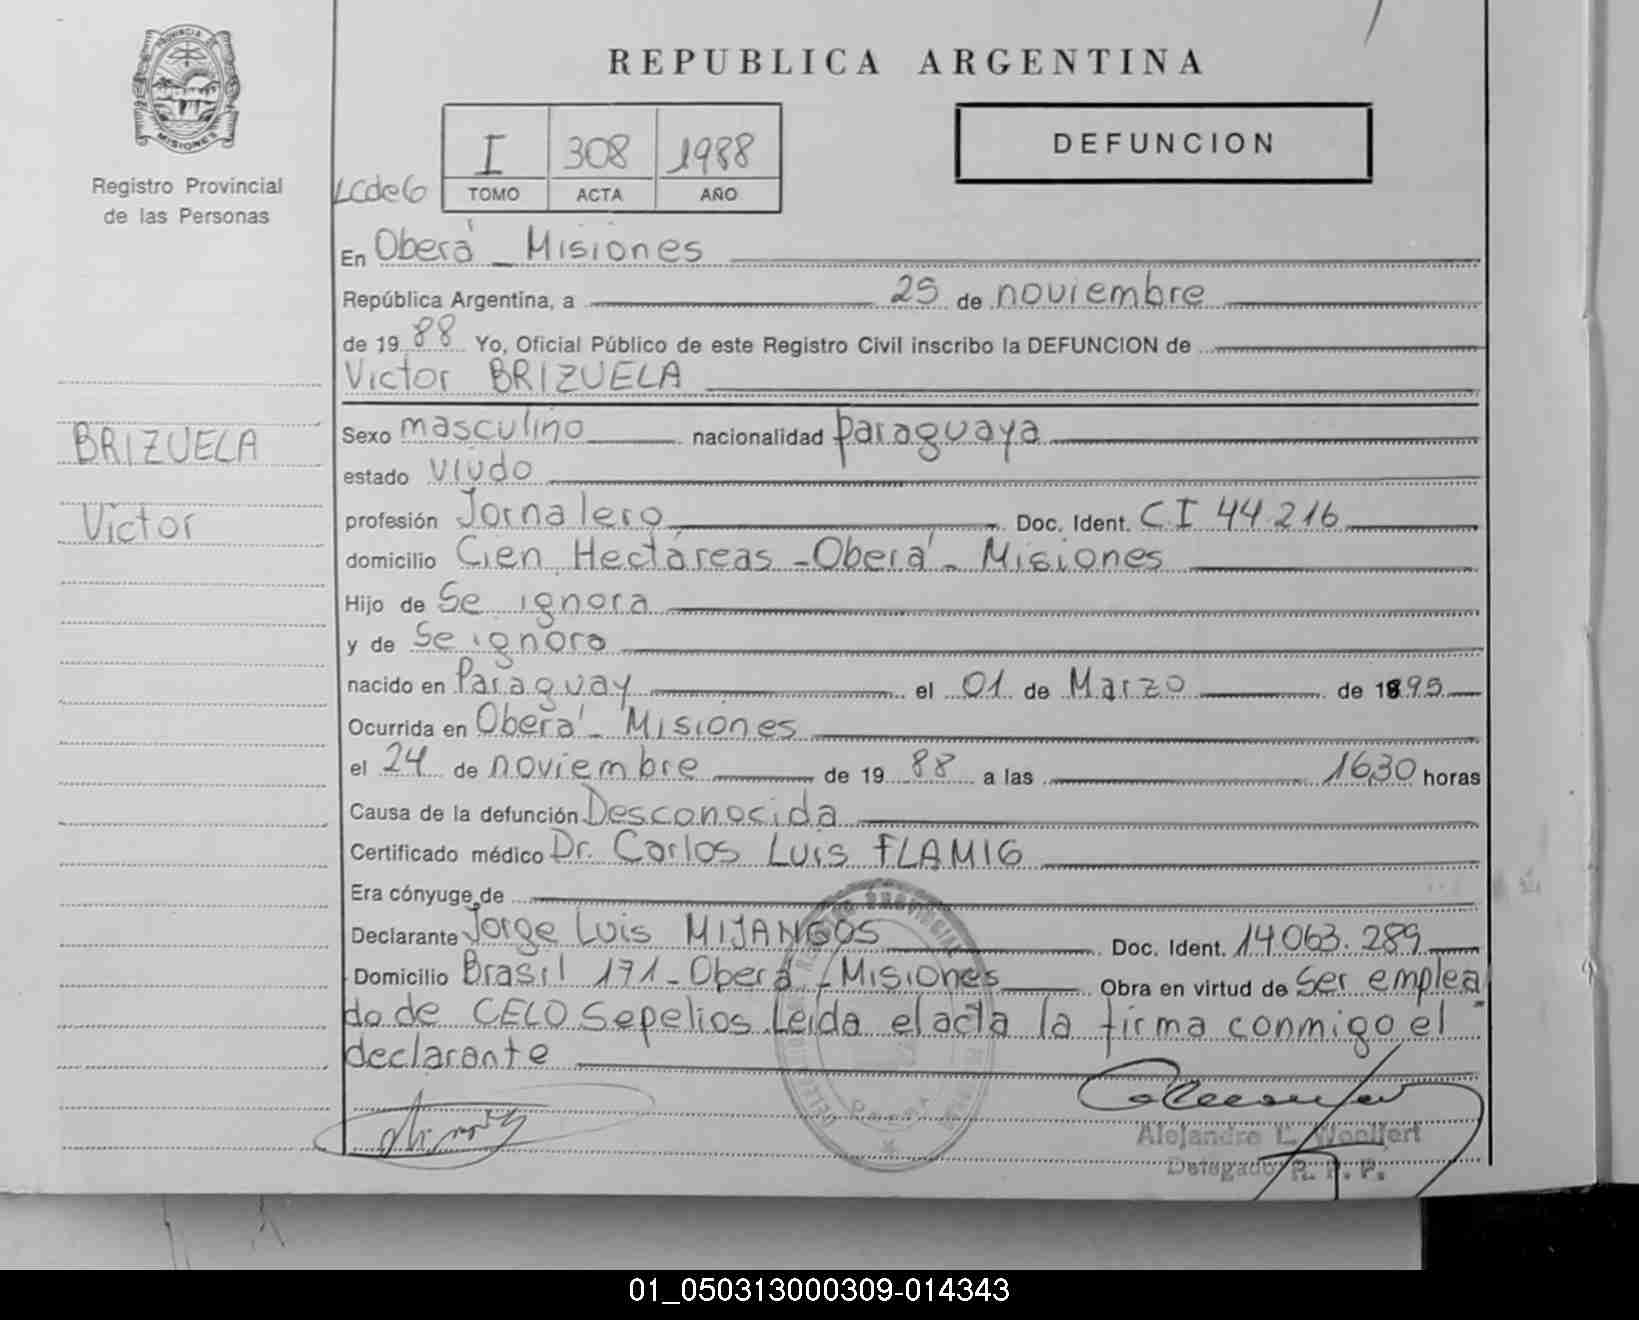 PROVINCIA DE
MISIONES
Registro Provincial
de las Personas
BRIZUELA
Victor
REPUBLICA ARGENTINA
DEFUNCION
I 308 1988
TOMO ACTA AÑO
LCde6
En Oberá - Misiones
República Argentina, a 25 de noviembre
de 19 88 Yo, Oficial Público de este Registro Civil inscribo la DEFUNCION de
Victor BRIZUELA
Sexo masculino nacionalidad paraguaya
estado viudo
profesión Jornalero Doc. Ident. C.I 44.216
domicilio Cien Hectáreas - Oberá - Misiones
Hijo de Se ignora
y de Se ignora
nacido en Paraguay el 01 de Marzo de 1895
Ocurrida en Oberá - Misiones
el 24 de noviembre de 19 88 a las 16,30 horas
Causa de la defunción Desconocida
Certificado médico Dr. Carlos Luis FLAMIG
Era cónyuge de
Declarante Jorge Luis MIJANGOS Doc. Ident. 14.063.289
Domicilio Brasil 171 - Oberá - Misiones Obra en virtud de ser emplea
do de CELO Sepelios. Leída el acta la firma conmigo el
declarante
Alejandro L. Woolfert
Delegado R. P. P.
01_050313000309-014343